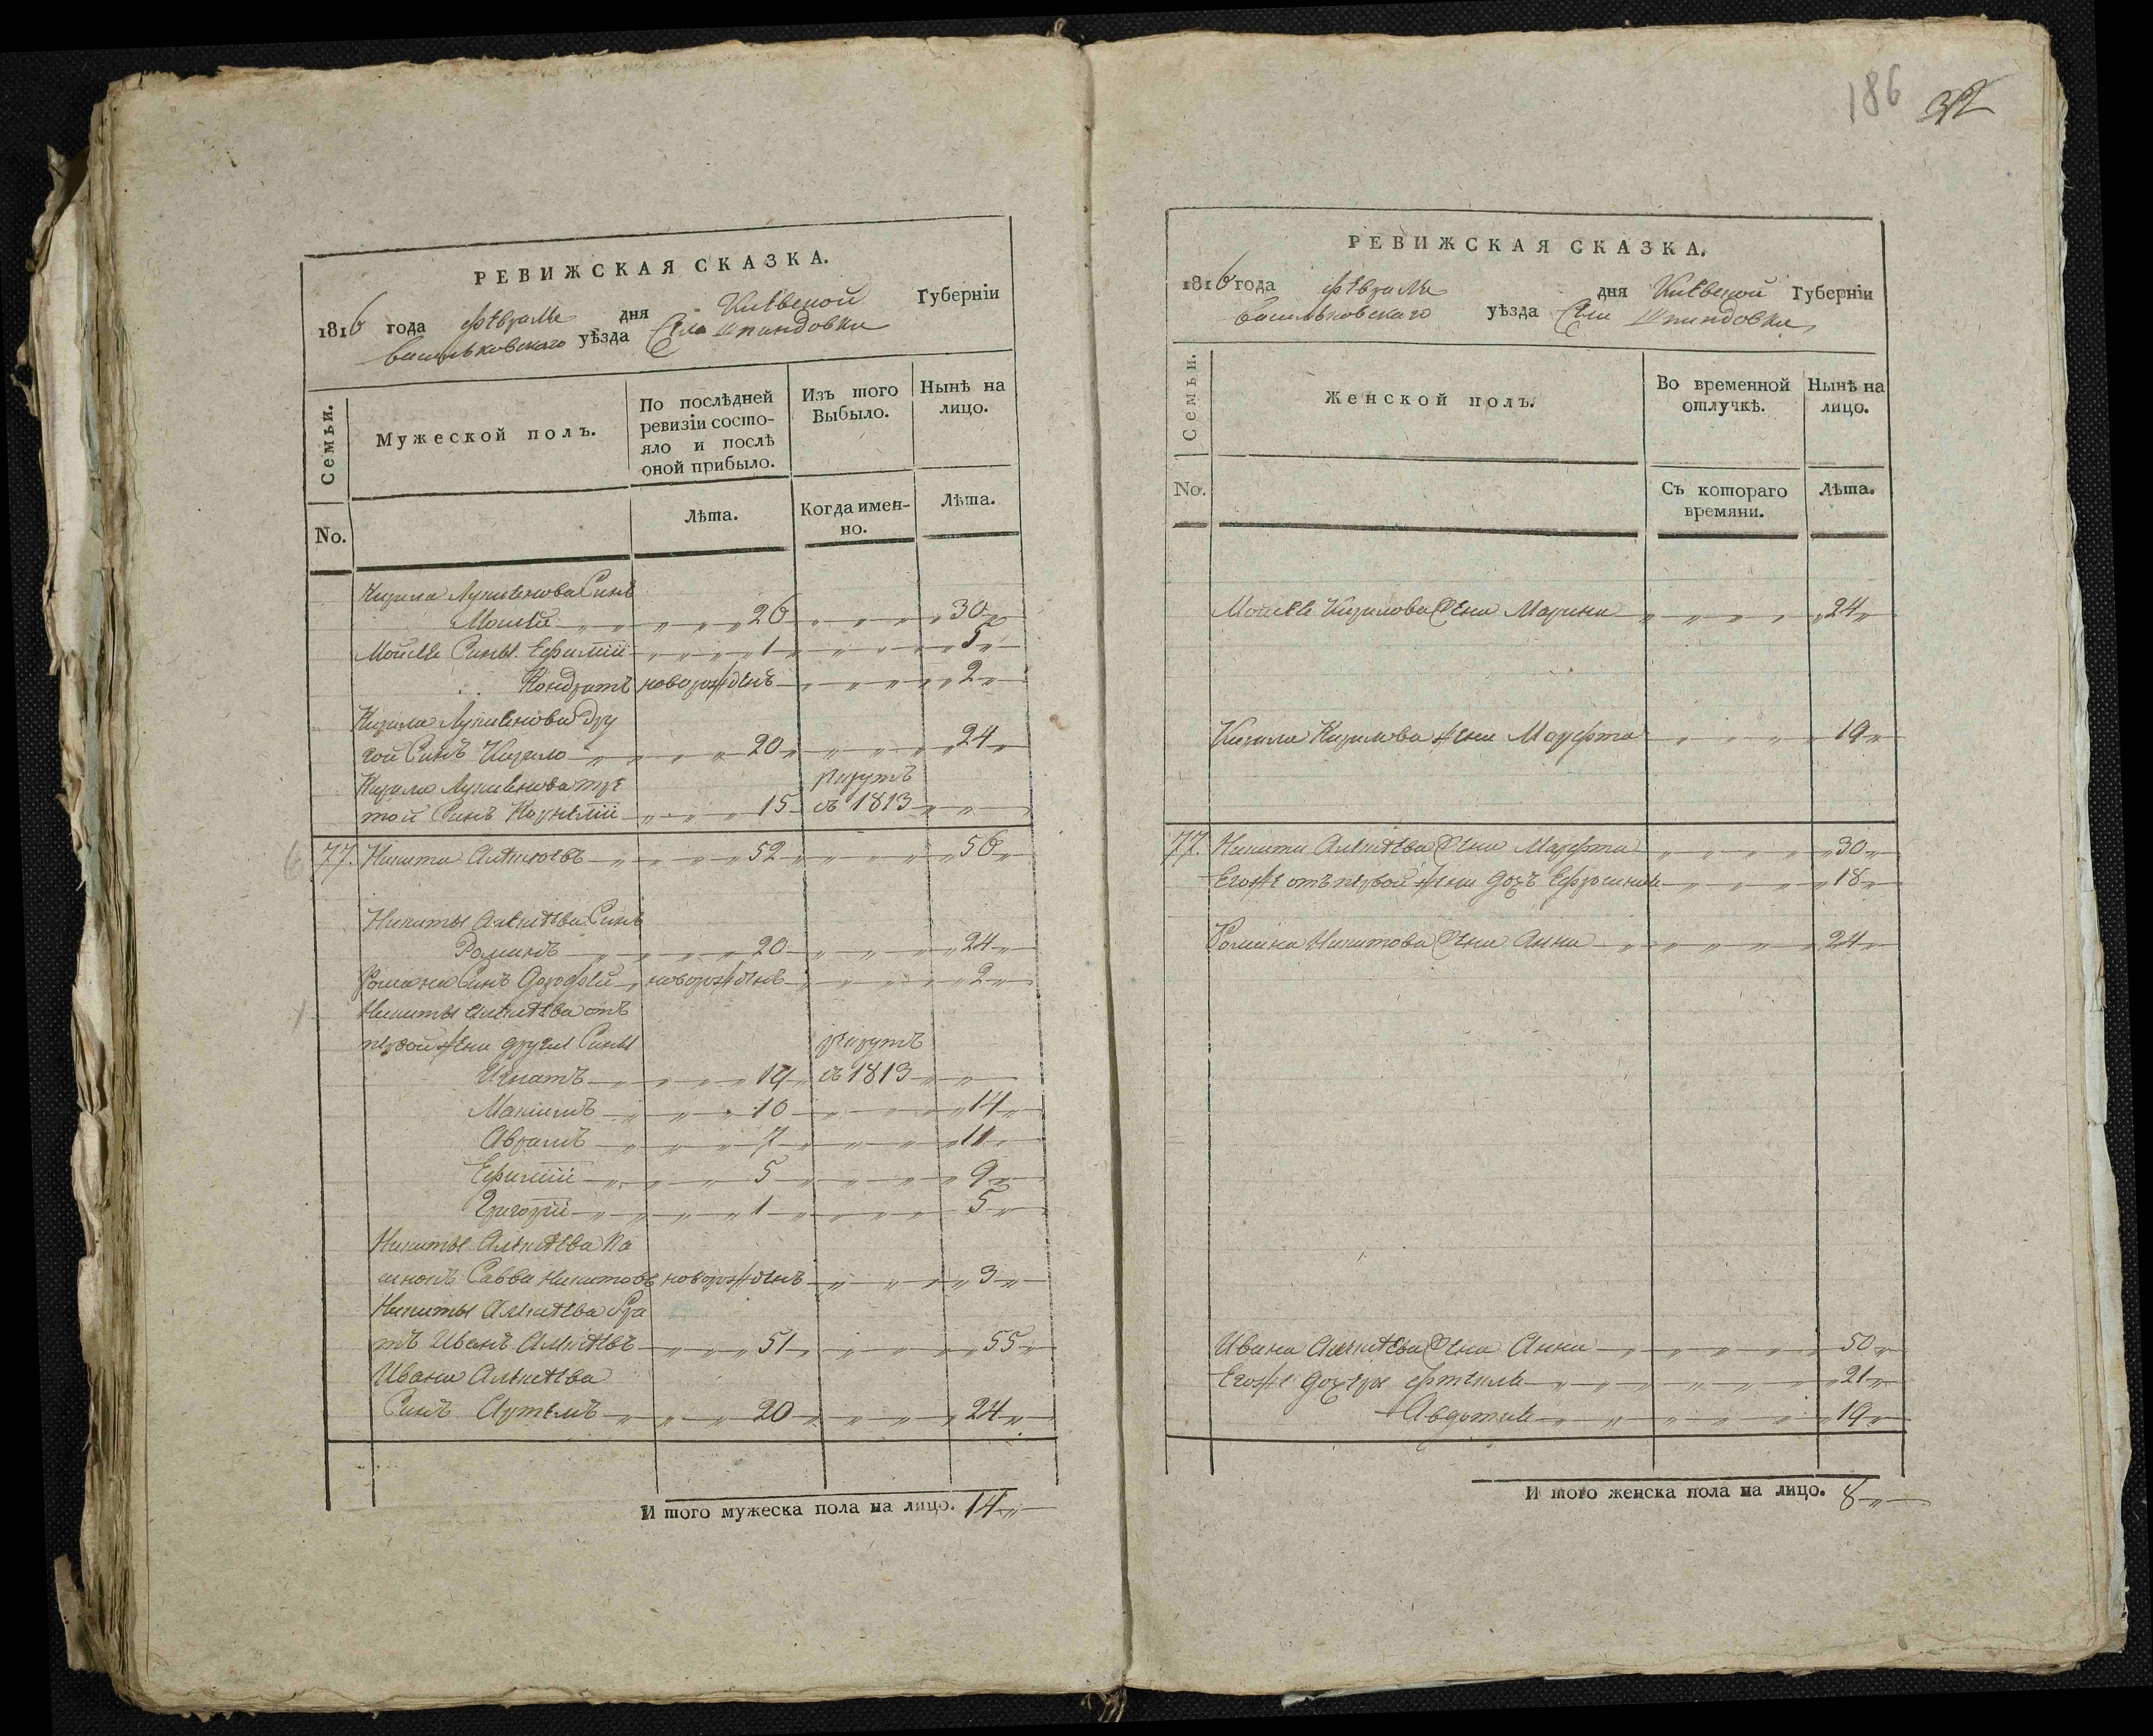 186 32
РЕВИЖСКАЯ СКАЗКА.
1816 года февраля дня Киевской Губерніи
Васильковскаго уѣзда Села Шпиндовки
Семьи.
Мужеской полъ.
По послѣдней ревизіи состо-
яло и послѣ
оной прибыло.
Изъ того
Выбыло.
Нынѣ на
лицо.
No.
Лѣта.
Когда имен-
но.
Лѣта.
Кирила Лукиянова Синъ
Моисей 26 30
Моисея Сины Ефимій 1 5
Кондратъ новорожденъ 2
Кирила Лукиянова дру
гой Синъ Кирило 20 24
Кирила Лукиянова тре
той Синъ Корнелій 15 рекрутъ въ 1813
77. Никита Алексеевъ 52 56
Никиты Алексеева Синъ
Романъ 20 24
Романа Синъ Дорофей новорожденъ 2
Никиты Алексеева отъ
первой жены другие Сины
Игнатъ 19 рекрутъ въ 1813
Максимъ 10 14
Аврамъ 7 11
Ефимій 5 9
Григорій 1 5
Никиты Алексеева па
синокъ Савва Никитовъ новорожденъ 3
Никиты Алексеева бра
тъ Иванъ Алексеевъ 51 55
Ивана Алексеева
Синъ Артемъ 20 24
И того мужеска пола на лицо. 14
РЕВИЖСКАЯ СКАЗКА.
1816 года февраля дня Киевской Губерніи
Васильковскаго уѣзда Села Шпиндовки
Семьи.
Женской полъ.
Во временной
отлучкѣ.
Нынѣ на
лицо.
No.
Съ котораго
времяни.
Лѣта.
Моисея Кирилова жена Марина 24
Кирила Кирилова жена Марфа 19
77. Никиты Алексеева жена Марфа 30
Егоже отъ первой жены дочь Ефросиния 18
Романа Никитова жена Анна 24
Ивана Алексеева жена Анна 50
Егоже дочери Фтекля 21
Авдотия 19
И того женска пола на лицо. 8